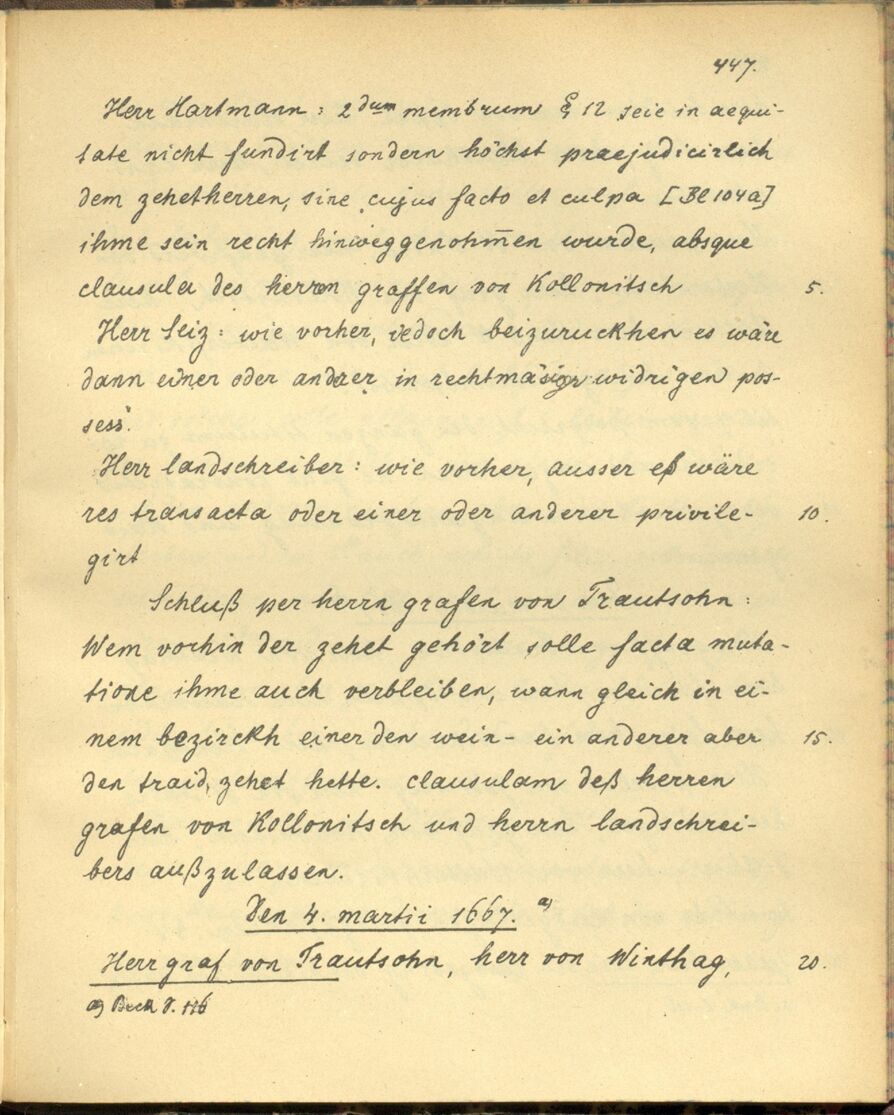 447.
Herr Hartmann: 2dum membrum § 12 seie in aequi-
tate nicht fundirt sondern höchst praejudicirlich
dem zehetherren, sine cujus facto et culpa [Bl 104a]
ihme sein recht hinweggenohm̄en wurde, absque
clausula des herren graffen von Kollonitsch 5.
Herr Seiz: wie vorher, iedoch beizuruckhen es wäre
dann einer oder andrer in rechtmäsiger widrigen pos-
sess.
Herr landschreiber: wie vorher, ausser eß wäre
res transacta oder einer oder anderer privile- 10.
girt
Schluß per herrn grafen von Trautsohn:
Wem vorhin der zehet gehört solle facta muta-
tione ihme auch verbleiben, wann gleich in ei-
nem bezirckh einer den wein- ein anderer aber 15.
den traid, zehet hette. clausulam deß herren
grafen von Kollonitsch und herrn landschrei-
bers außzulassen.
Den 4. martii 1667. a)
Herr graf von Trautsohn, herr von Winthag, 20.
a) Beck S. 116